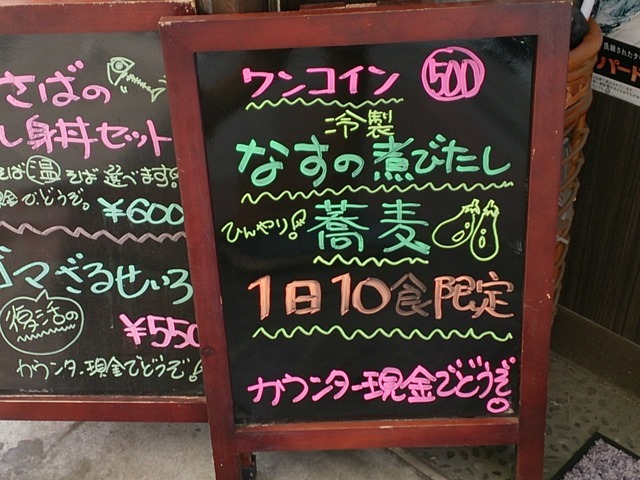 さばの
し身丼セット
そば温そば選べます。
金でどうぞ。
¥600
マざるせいろ
復活の
¥550
カウンター現金でどうぞ!
ワンコイン 500
冷製
なすの煮びたし
ひんやり! 蕎麦
1日10食限定
カウンター現金でどうぞ!